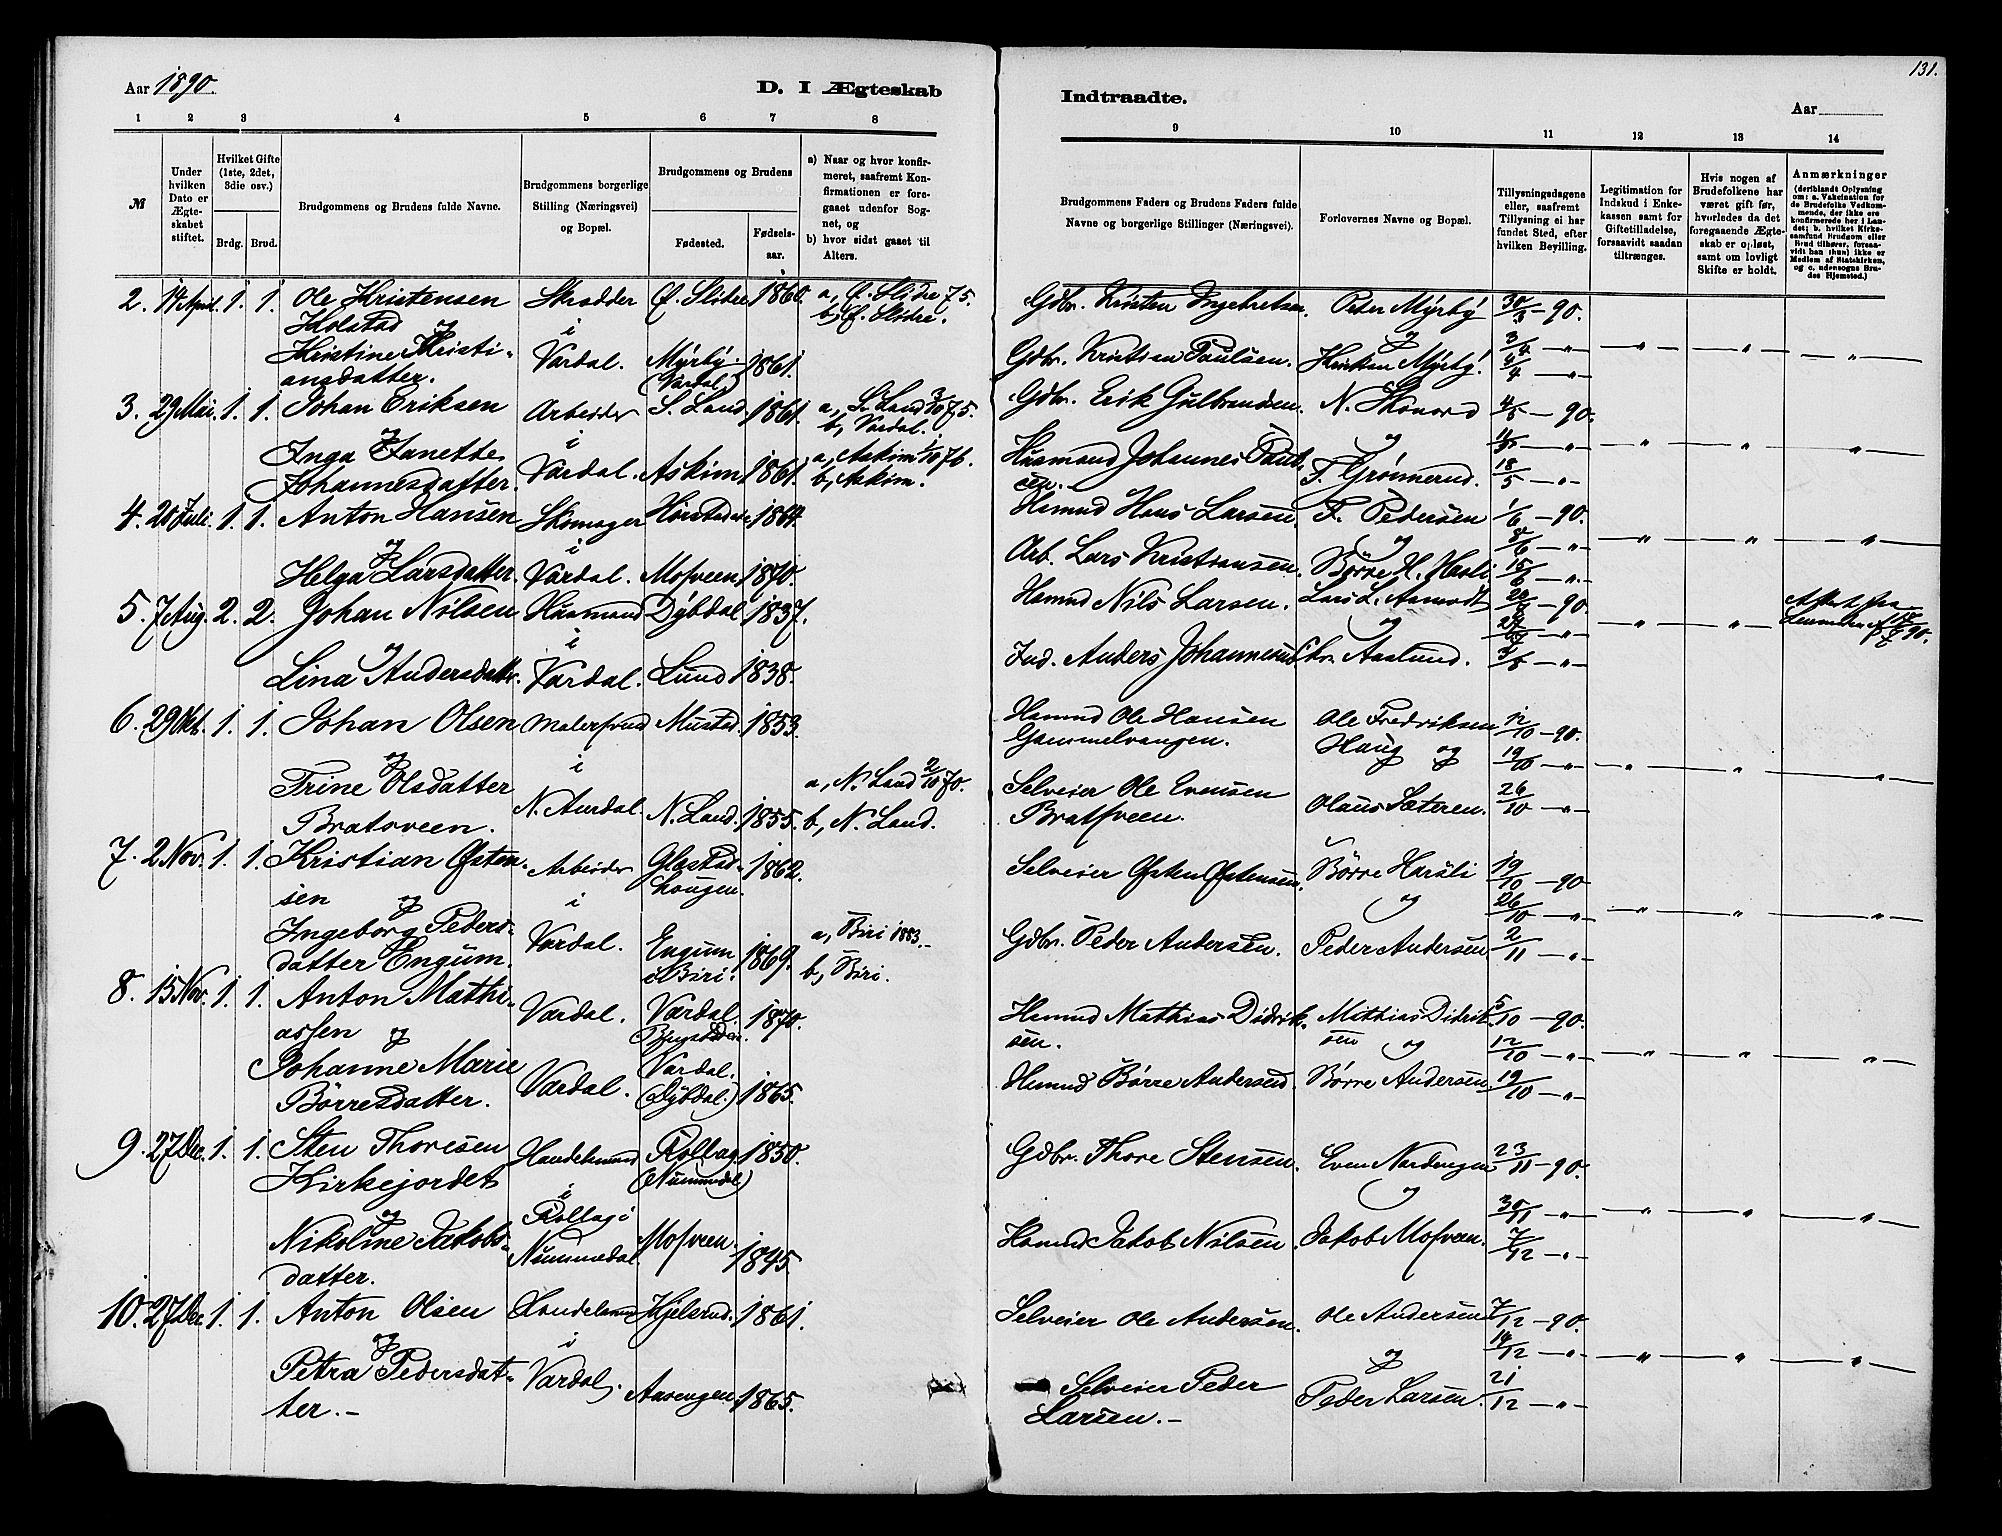 Aar 1890.
D. I Ægteskab
Indtraadte.
131.
Aar
1 2 3 4 5 6 7 8
9 10 11 12 13 14
№
Under hvilken Dato er Ægteskabet stiftet.
Hvilket Gifte (1ste, 2det, 3die osv.)
Brdg. Brud.
Brudgommens og Brudens fulde Navne.
Brudgommens borgerlige Stilling (Næringsvei) og Bopæl.
Brudgommens og Brudens
Fødested.
Fødselsaar.
a) Naar og hvor konfirmeret, saafremt Konfirmationen er foregaaet udenfor Sognet, og
b) hvor sidst gaaet til Alters.
Brudgommens Faders og Brudens Faders fulde Navne og borgerlige Stillinger (Næringsvei).
Forlovernes Navne og Bopæl.
Tillysningsdagene eller, saafremt Tillysning ei har fundet Sted, efter hvilken Bevilling.
Legitimation for Indskud i Enkekassen samt for Giftetilladelse, forsaavidt saadan tiltrænges.
Hvis nogen af Brudefolkene har været gift før, hvorledes da det foregaaende Ægteskab er opløst, samt om lovligt Skifte er holdt.
Anmærkninger
(deriblandt Oplysning om: a. Vakcination for de Brudefolks Vedkommende, der ikke ere konfirmerede her i Landet; b. hvilket Kirkesamfund Brudgom eller Brud tilhører, forsaavidt han (hun) ikke er Medlem af Statskirken, og c. udensogns Brudes Hjemsted.)
2. 14 April. 1. 1. Ole Kristensen Skrædder Ø. Slidre 1860. a, Ø. Slidre 75. Gdbr. Kristen Ingebretsen. Peter Myrby 30/3 - 90.
Holstad i b, Ø. Slidre. og 3/4 - " -
og
Kristine Kristi- Vardal. Myrby. 1861. Gdbr. Kristian Paulsen. Kristian Myrby. 4/4 - " -
ansdatter. (Vardal)
3. 29 Mai. 1. 1. Johan Eriksen Arbeider S. Land. 1861. a, S. Land 3/10 75. Gdbr. Erik Gulbrandsen. N. Skonord 4/5 - 90.
og i b, Vardal. og 11/5 - " -
Inga Janette Vardal. Askim 1861. a, Askim 1/10 76. Husmand Johannes Paul- F. Grønnerud. 18/5 - " -
Johannesdatter. b, Askim. sen.
4. 20 Juli. 1. 1. Anton Hansen Skomager 1864. Hsmnd Hans Larsen. F. Pedersen 1/6 - 90.
og i og 8/6 - " -
Helga Larsdatter. Vardal. Mosveen 1870. Arb. Lars Kristiansen. Børre H. 15/6 - " -
5. 7 Aug. 2. 2. Johan Nilsen Husmand Dybdal 1837. Hsmnd Nils Larsen. Lars L. Aamodt - 90. Attest fra
og i og - " -
Lina Andersdatter. Vardal. Lund 1838. Ind. Anders Johannesen Chr. Aaslund. - " -
6. 29 Okt. 1. 1. Johan Olsen Malersvend Mustad. 1853. Hsmnd Ole Hansen Ole Fredriksen 12/10 - 90.
og i Gammelvangen. Haug og 19/10 - " -
Trine Olsdatter N. Aurdal. N. Land. 1855. a, N. Land 2/10 70. Selveier Ole Evensen Olaus Sæteren. 26/10 - " -
Bratsveen. b, N. Land. Bratsveen.
7. 2 Nov. 1. 1. Kristian Østen- Arbeider Glæstad- 1862. Selveier Østen Østensen. Børre Harsli 19/10 - 90
sen og i haugen. og 26/10 - " -
Ingeborg Peders- Vardal. Engum 1869. a, Biri 1883. Gdbr. Peder Andersen. Peder Andersen 2/11 - " -
datter Engum. i Biri. b, Biri.
8. 15 Nov. 1. 1. Anton Mathi- Vardal. Vardal 1870. Hsmnd Mathias Didrik- Mathias Didrik- 5/10 - 90.
assen og sen. sen og 12/10 - " -
Johanne Marie Vardal. Vardal. 1865. Hsmnd Børre Andersen. Børre Andersen. 19/10 - " -
Børresdatter. (Dybdal.)
9. 27 Dec. 1. 1. Sten Thoresen Handelsmand Rollag 1850. Gdbr. Thore Stensen. Even Nordengen 23/11 - 90.
Kirkejordet i (Nummedal) og 30/11 - " -
og Rollag i
Nikoline Jakobs- Nummedal. Mosveen. 1845. Hsmnd Jakob Nilsen. Jakob Mosveen. 7/12 - " -
datter.
10. 27 Dec. 1. 1. Anton Olsen Handelsmand Hjelsrud. 1861. Selveier Ole Andersen. Ole Andersen 7/12 - 90.
og i og 14/12 - " -
Petra Pedersdat- Vardal. Aasengen. 1865. Selveier Peder Peder Larsen. 21/12 - " -
ter. - Larsen. -